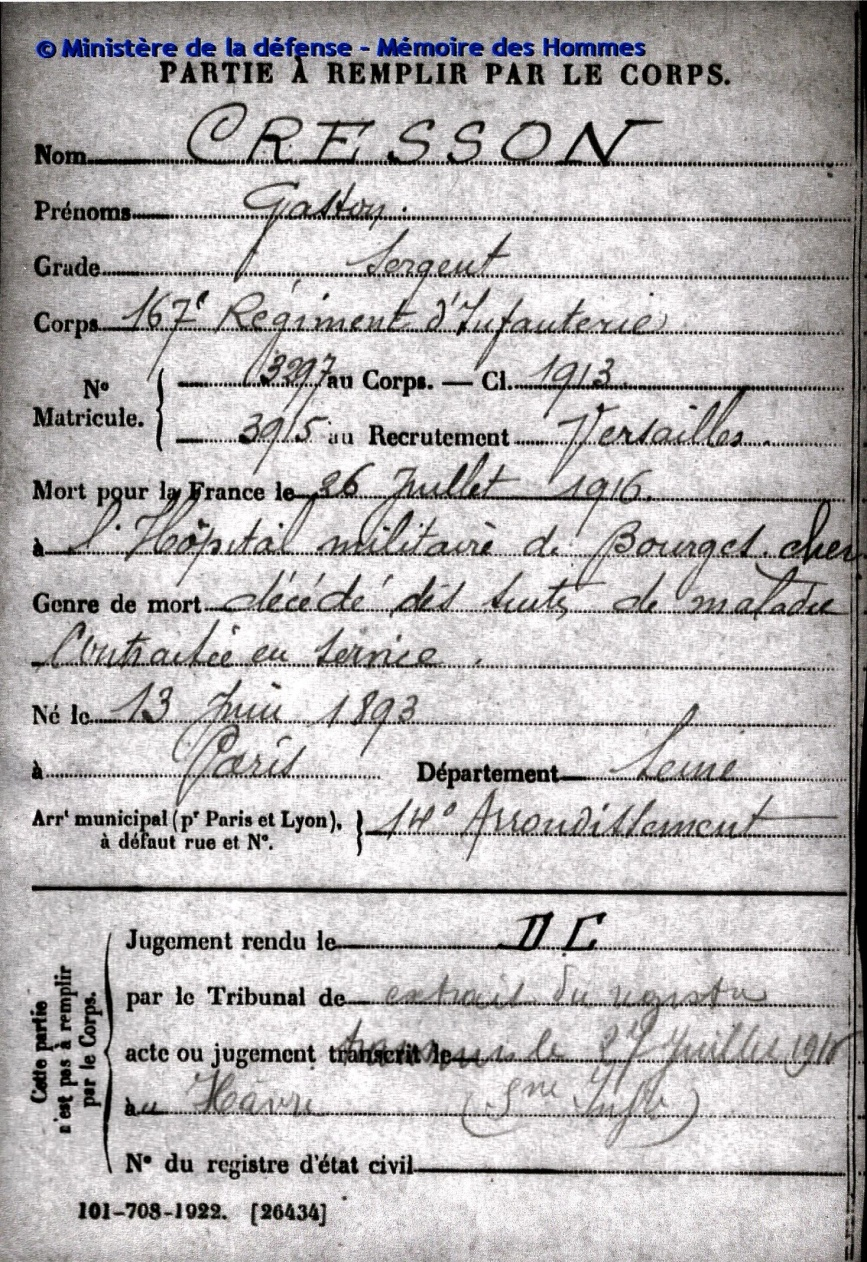 © Ministère de la défense - Mémoire des Hommes
PARTIE À REMPLIR PAR LE CORPS.
Nom CRESSON
Prénoms Gaston.
Grade Sergent
Corps 167e Régiment d'Infanterie
N° Matricule. 3297 au Corps. — Cl. 1913
3915 au Recrutement Versailles.
Mort pour la France le 26 Juillet 1916.
à l'Hôpital militaire de Bourges. cher
Genre de mort décédé des suites de maladie
Contractée en service.
Né le 13 Juin 1893
à Paris Département Seine
Arrt municipal (pr Paris et Lyon), à défaut rue et N°. 14e Arrondissement
Cette partie n'est pas à remplir par le Corps.
Jugement rendu le DC
par le Tribunal de extrait du registre
acte ou jugement transcrit le le 27 Juillet
au Hâvre (Sne Infre)
N° du registre d'état civil
101-708-1922. [26434]